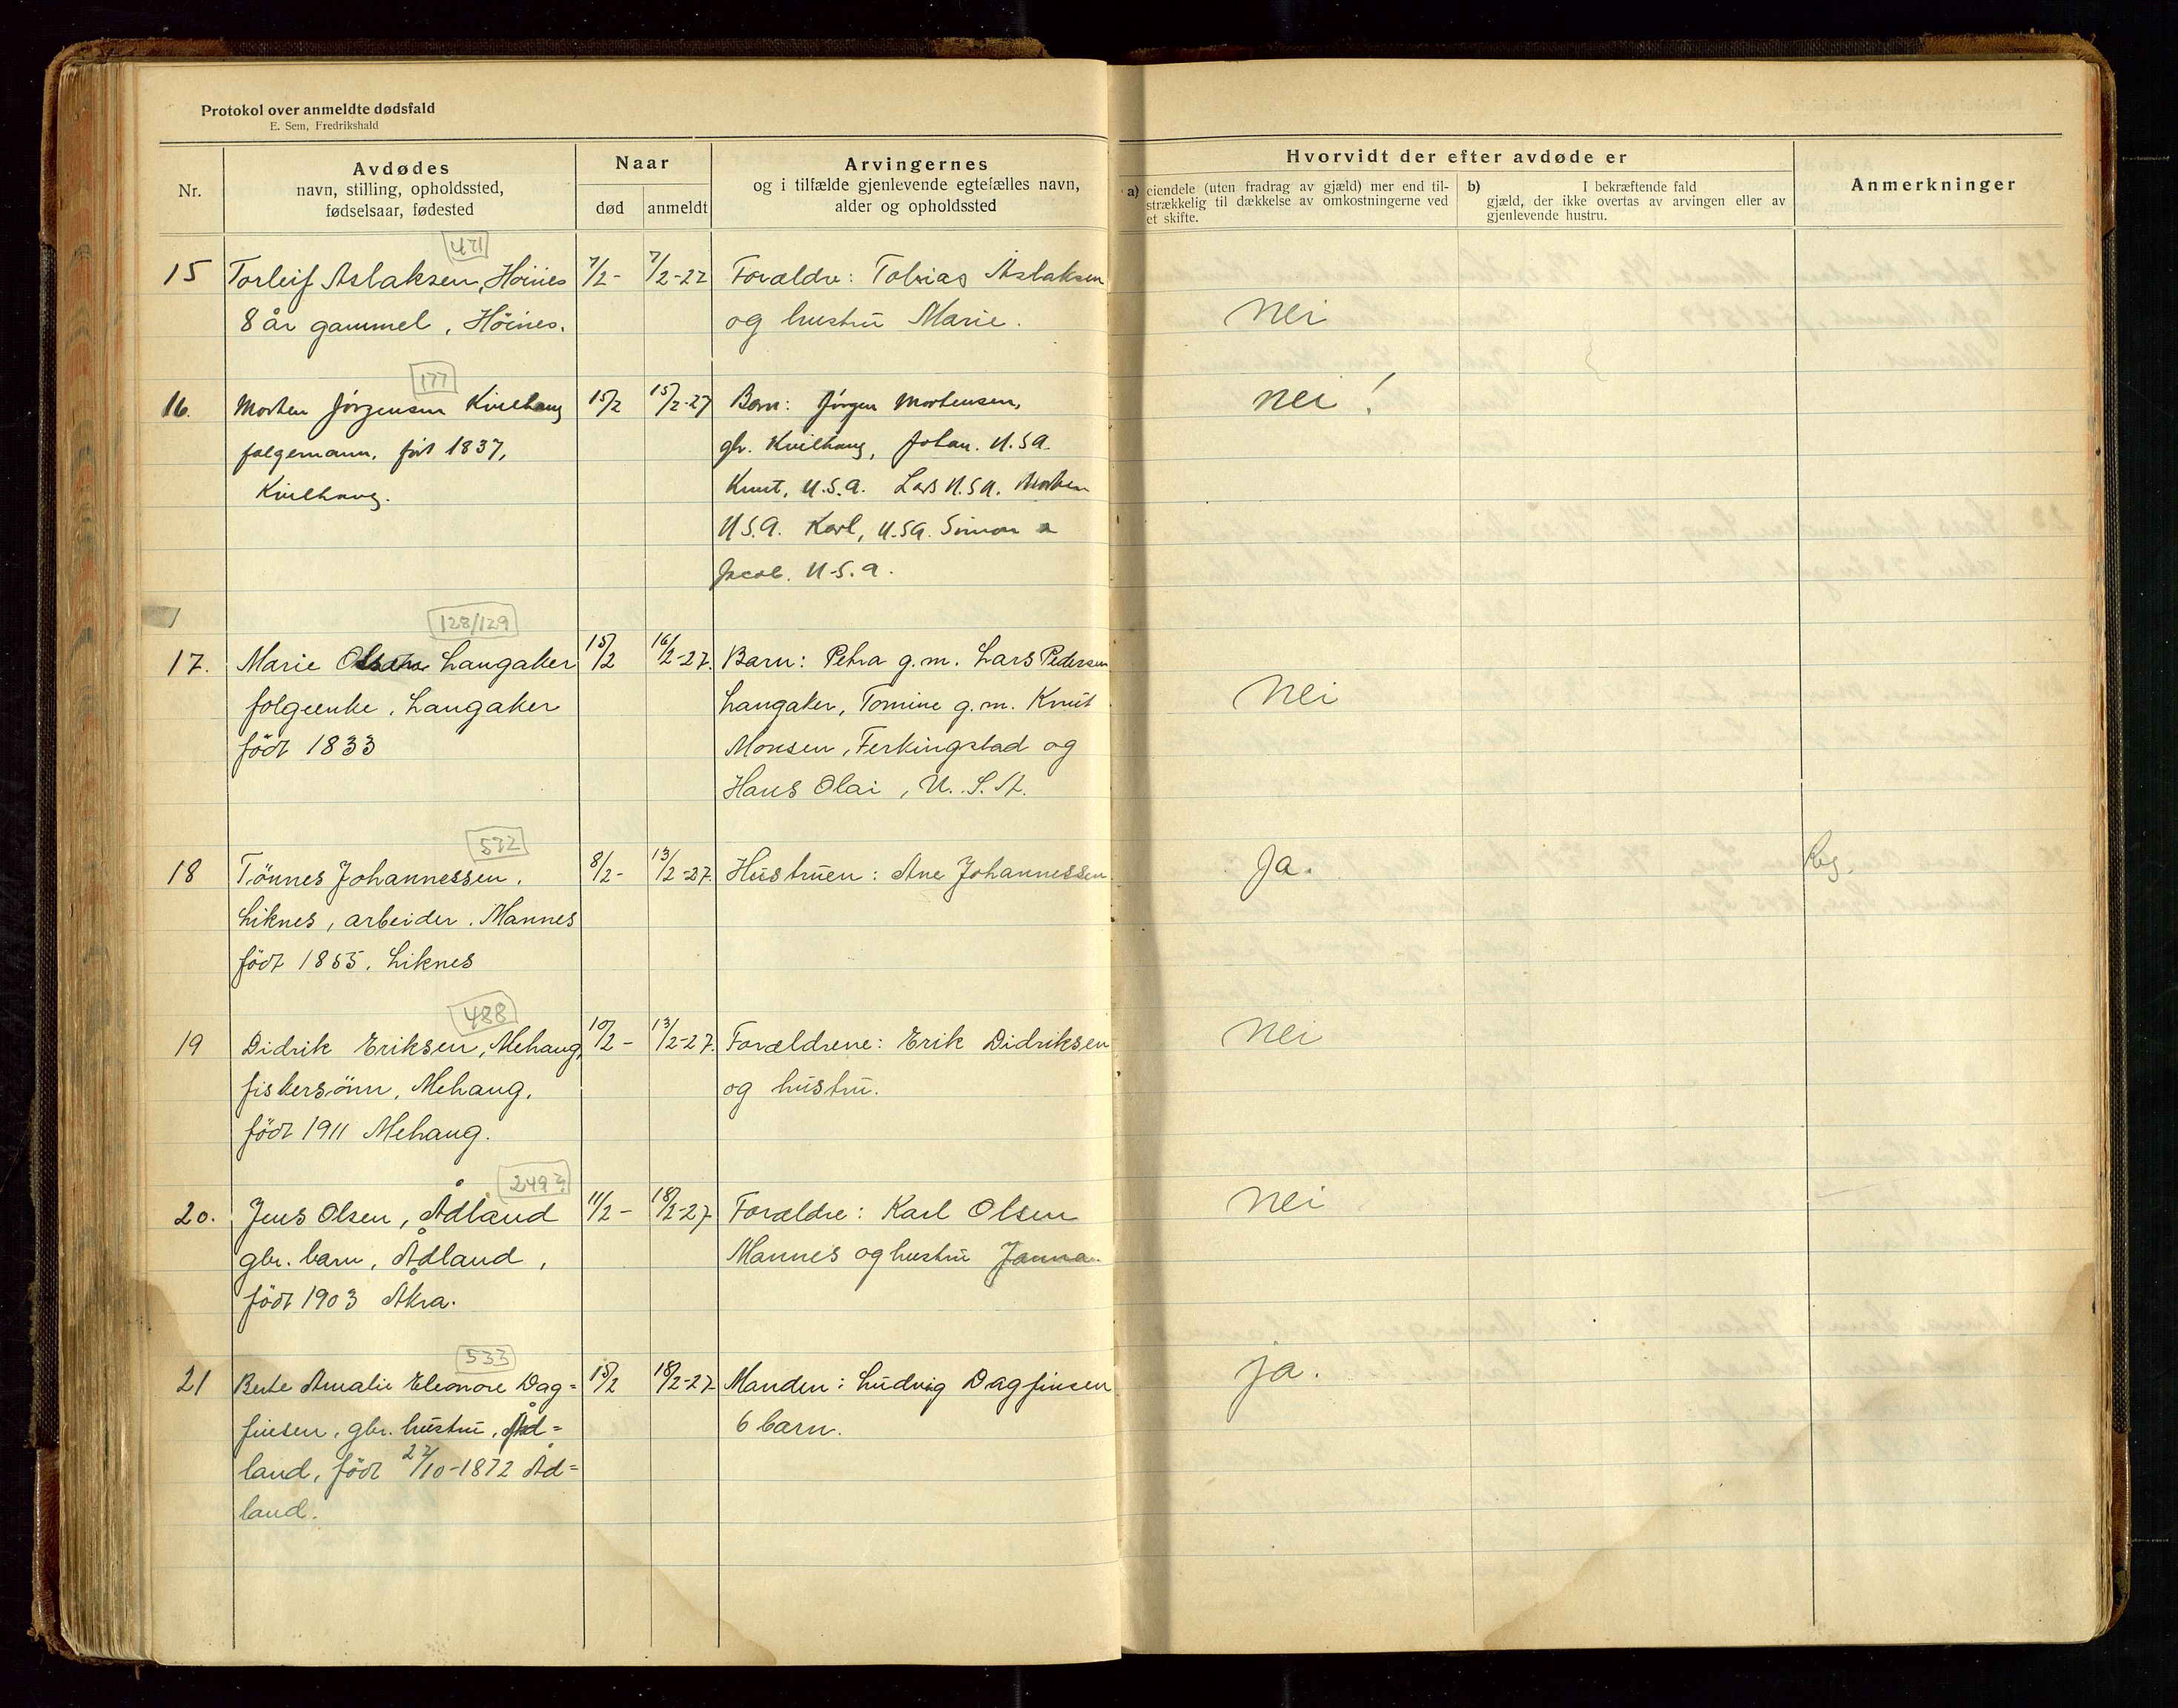 Protokol over anmeldte dødsfald
E. Sem, Fredrikshald
Nr.
Avdødes
navn, stilling, opholdssted,
fødselsaar, fødested
Naar
død
anmeldt
Arvingernes
og i tilfælde gjenlevende egtefælles navn,
alder og opholdssted
Hvorvidt der efter avdøde er
a) eiendele (uten fradrag av gjæld) mer end til-
strækkelig til dækkelse av omkostningerne ved
et skifte.
b) I bekræftende fald
gjæld, der ikke overtas av arvingen eller av
gjenlevende hustru.
Anmerkninger
471
15 Torleif Aslaksen, Höines 7/2- 7/2-27 Forældre: Tobias Aslaksen
8 år gammel, Höines. og hustru Marie. nei
177
16. Morten Jörgensen Kvilhaug 15/2 15/2-27 Barn: Jörgen Mortensen, nei!
følgemann, født 1837, gbr. Kvilhaug, Johan. U.S.A.
Kvilhaug. Knut, U.S.A. Lars U.S.A. Morten
U.S.A. Karl, U.S.A. Simon
Jacob. U.S.A.
128/129
17. Marie Langaker 15/2 16/2-27. Barn: Petra g.m. Lars Pedersen
folgeenke, Langaker Langaker, Tomine g.m. Knut nei
födt 1833 Monsen, Ferkingstad og
Hans Olai, U.S.A.
532
18 Tönnes Johannessen, 8/2- 13/2-27. Hustruen: Ane Johannessen ja.
Liknes, arbeider. Mannes
födt 1855. Liknes
488
19 Didrik Eriksen, Mehaug, 10/2- 13/2-27. Forældrene: Erik Didriksen nei
fiskersönn, Mehaug, og hustru.
födt 1911 Mehaug.
249
20. Jens Olsen, Ådland 11/2- 18/2-27 Forældre: Karl Olsen nei
gbr. barn, Ådland, Mannes og hustru Janna.
födt 1903 Åkra.
533
21 Berte Amalie Eleonore Dag= 15/2 18/2-27 Manden: Ludvig Dagfinsen ja.
finsen, gbr. hustru, Åd= 6 barn.
land, födt 27/10-1872 Åd=
land.